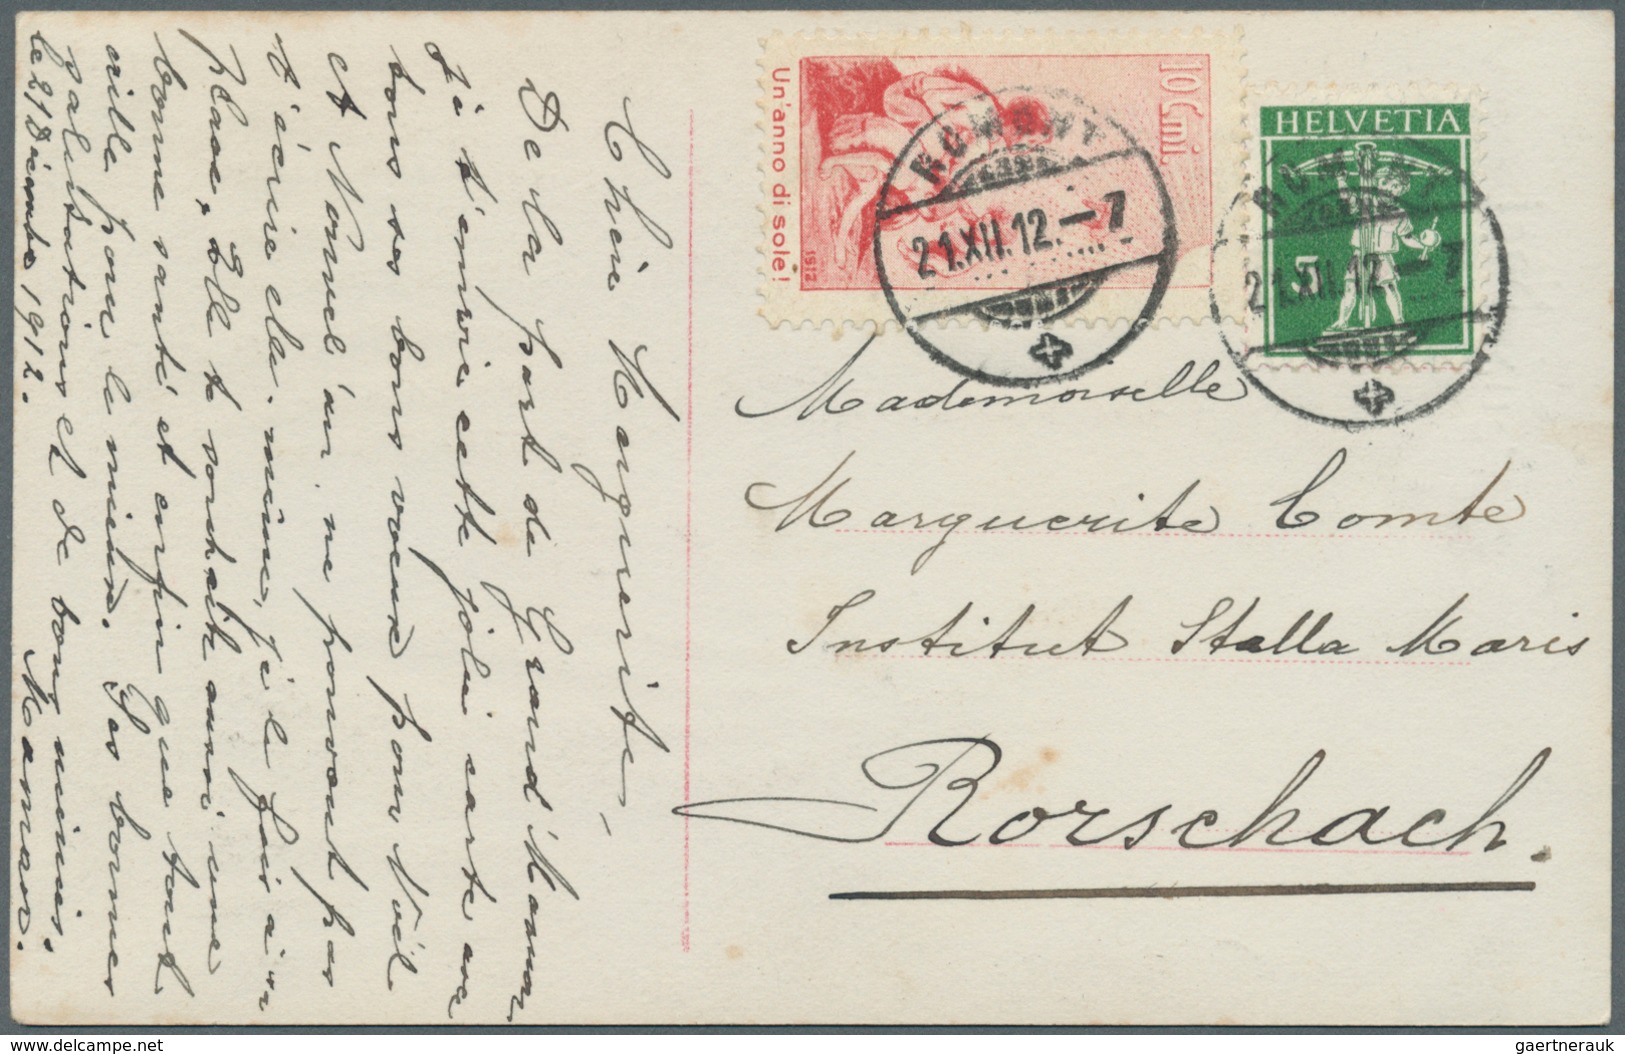 Chère Marguerite,
De la part de Grand'Maman
je t'envoie cette jolie carte avec
tous ses bons vœux pour Noël
et Nouvel'an, ne pouvant pas
t'écrire elle-même, je le fais à sa
place, Elle te souhaite aussi une
bonne santé et enfin que tout
aille pour le mieux. Les bonnes
salutations et de bons mimis.
le 21 Décembre 1912. Maman.
Un'anno di sole!
10 Cmi.
1912
ROMONT
21.XII.12.–7
HELVETIA
5
ROMONT
21.XII.12.–7
Mademoiselle
Marguerite Comte
Institut Stella Maris
Rorschach.
www.delcampe.net
gaertnerauk